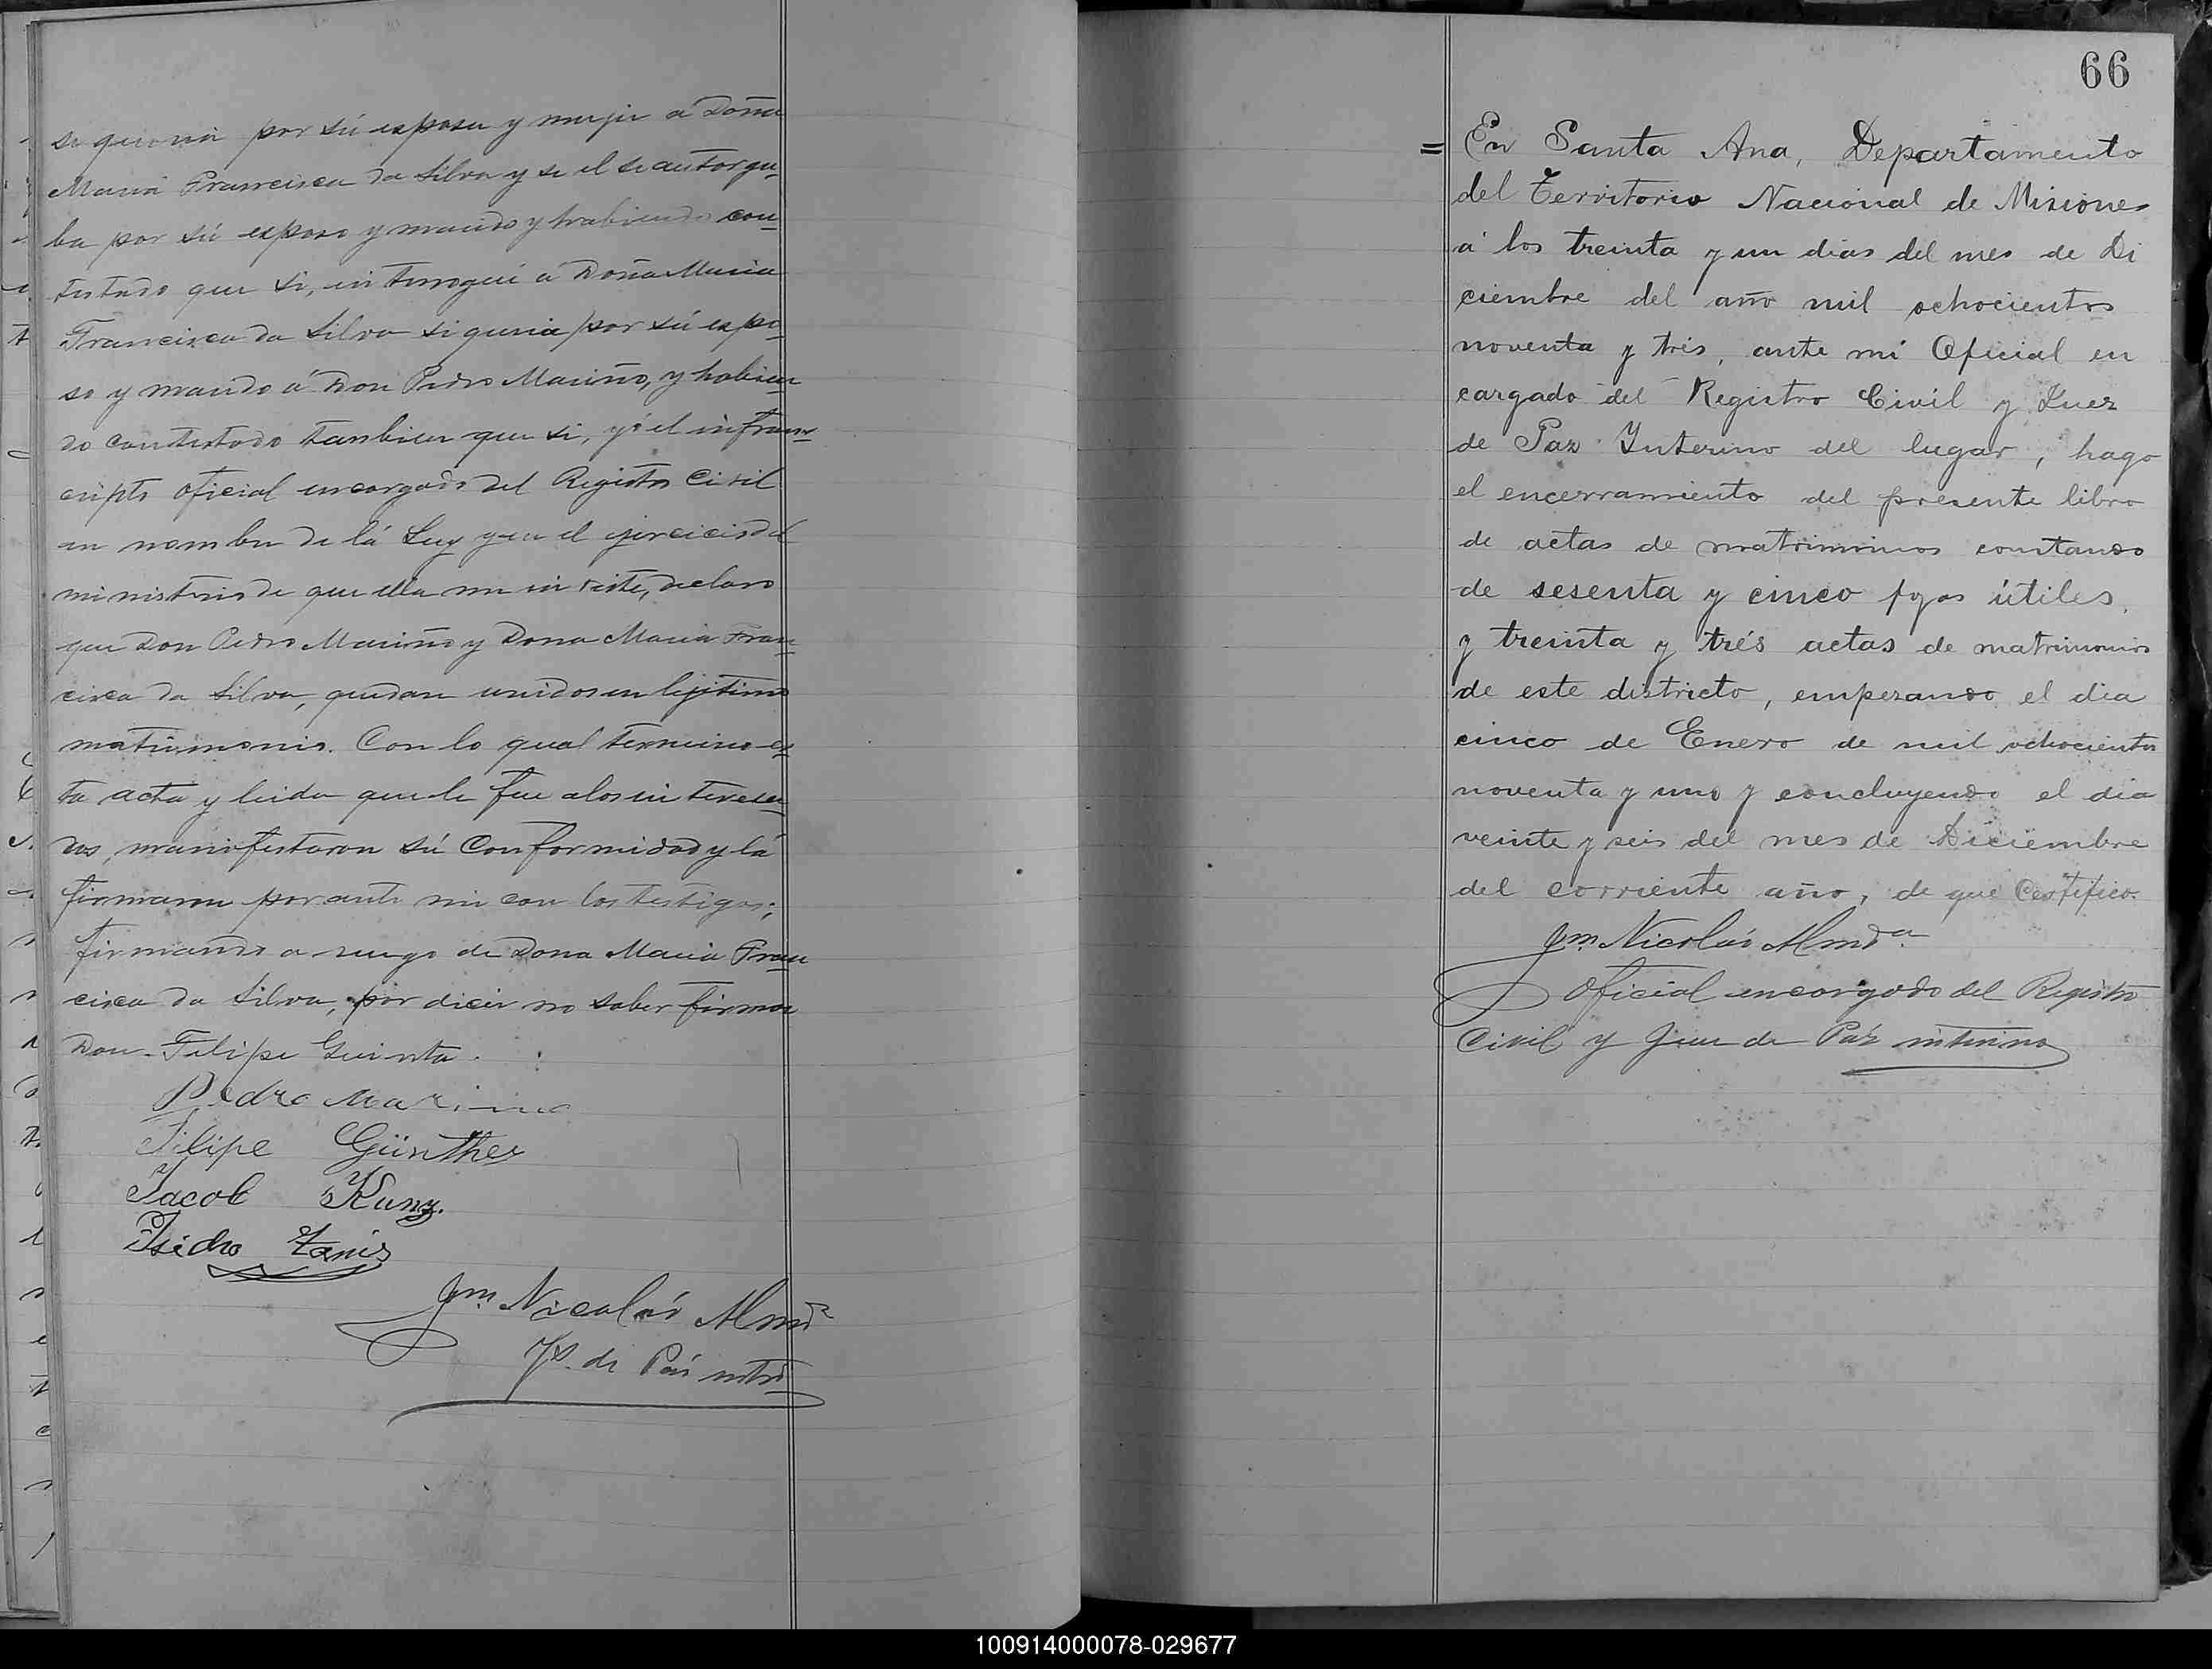 se queria por sú esposa y mujer a Doña
Maria Francisca da Silva y se el se autorga_
ba por sú esposo y marido y habiendo con_
testado que si, interrogué á Doña Maria
Francisca da Silva si queria por sú espo_
so y marido á Don Pedro Mariño, y habien_
do contestado tambien que si, yó el infrans_
cripto oficial encargado del Registro Civil
en nombre de lá Ley y en el ejercicio del
ministerio de que ella me inviste, declaro
que Don Pedro Mariño y Dona Maria Fran_
cisca da Silva, quedan unidos en lejitimo
matrimonio. Con lo qual termino es_
ta acta y leida que le fue a los interesa_
dos, manifestaron sú Conformidad y lá
firmaron por ante mi con los testigos;
firmando a ruego de Dona Maria Fran_
cisca da Silva, por dicir no saber firmar
Don Filipe Guinta.
Pedro Marino
Filipe Günther
Jacob Kunz.
Isidro
Jm Nicolás Almda
Js. de Pás intno
66
= En Santa Ana, Departamento
del Territorio Nacional de Misiones
á los treinta y un dias del mes de Di
ciembre del año mil ochocientos
noventa y trés, ante mí Oficial en
cargado del Registro Civil y Juez
de Paz Interino del lugar, hago
el encerramiento del presente libro
de actas de matrimonios constando
de sesenta y cinco fojas útiles,
y treinta y trés actas de matrimonios
de este districto, empezando el dia
cinco de Enero de mil ochocientos
noventa y uno y concluyendo el dia
veinte y seis del mes de Diciembre
del corriente año, de que Certifico.
Jm Nicolás Almda
Oficial encargado del Registro
Civil y Jues de Páz intirino
100914000078-029677